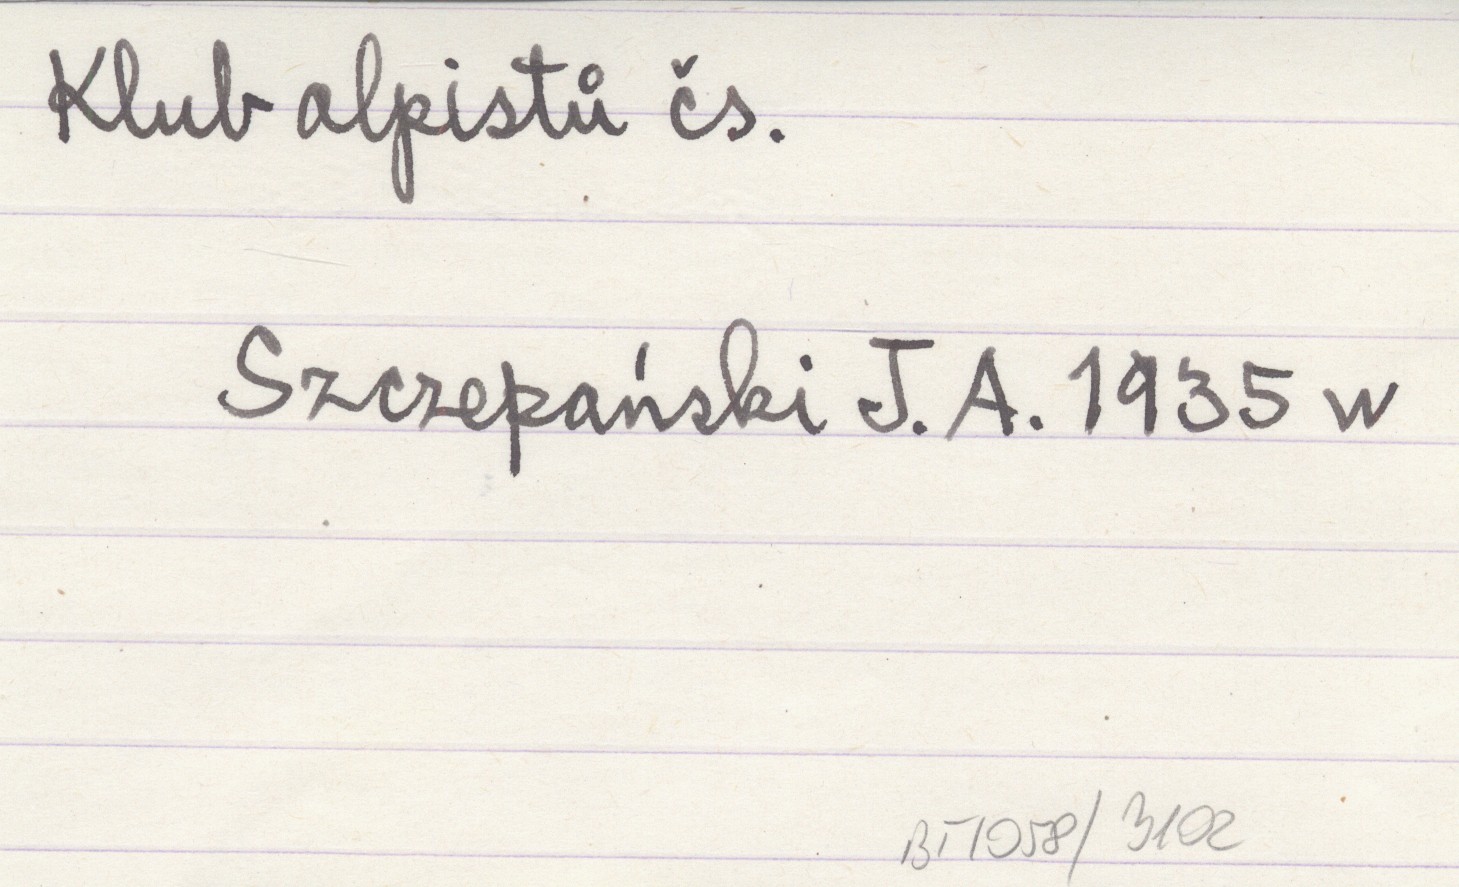 Klub alpistů čs.
Szczepański J. A. 1935 w
BT1058/3102